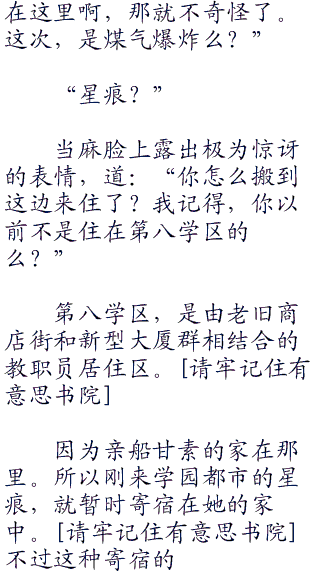 在这里啊，那就不奇怪了。
这次，是煤气爆炸么？”
“星痕？”
当麻脸上露出极为惊讶
的表情，道：“你怎么搬到
这边来住了？我记得，你以
前不是住在第八学区的
么？”
第八学区，是由老旧商
店街和新型大厦群相结合的
教职员居住区。[请牢记住有
意思书院]
因为亲船甘素的家在那
里。所以刚来学园都市的星
痕，就暂时寄宿在她的家
中。[请牢记住有意思书院]
不过这种寄宿的